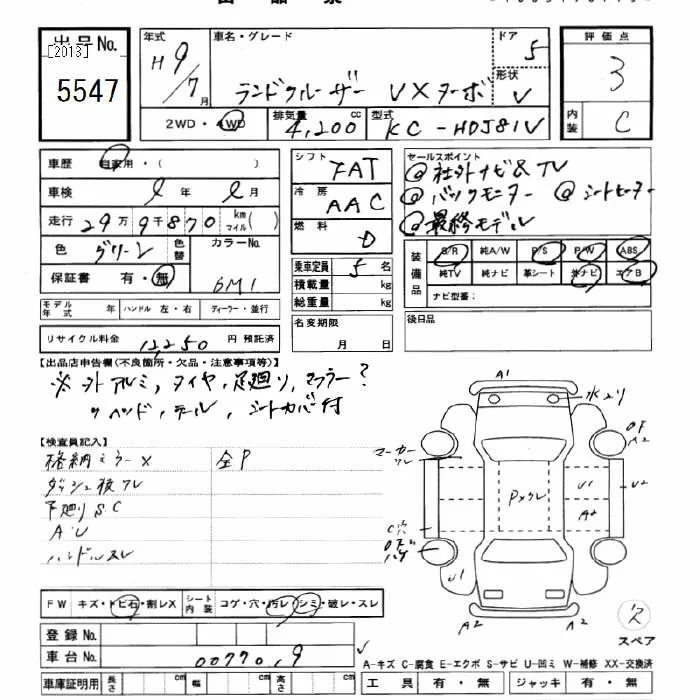 出品No.
[2013]
5547
年式
H 9/7月
車名・グレード
ランドクルーザー VXターボ
ドア 5
形状 V
評価点
3
内装 C
2WD・4WD
排気量 4,200 cc
型式 KC-HDJ81V
車歴 自家用・( )
車検 年 月
走行 29万9千870 km マイル( )
色 グリーン
色替
カラーNo. 6M1
保証書 有・無
シフト FAT
冷房 AAC
燃料 D
乗車定員 5名
積載量 kg
総重量 kg
名変期限
月 日
セールスポイント
@社外ナビ&TV
@バックモニター @シートヒーター
@最終モデル
装備品
S/R 純A/W P/S P/W ABS
純TV 純ナビ 革シート 外ナビ エアB
ナビ型番:
後日品
モデル年式 年 ハンドル 左・右 ディーラー・並行
リサイクル料金 12,250 円 預託済
【出品店申告欄(不良箇所・欠品・注意事項等)】
※外アルミ,タイヤ,足廻り,マフラー?
〃ヘッド,テール,シートカバー付
【検査員記入】
格納ミラーX 全P
ダッシュ板ワレ
下廻りS.C
A.U
ハンドルスレ
FW キズ・トビ石・割レX
シート内装 コゲ・穴・汚レ・シミ・破レ・スレ
登録No.
車台No. 00770.9
車庫証明用 長さ cm 幅 cm 高さ cm
A1
水入り
A2
マーカーワレ
Pメクレ
U1
U2
A2
C穴
U1
A2
A2
スペア
A-キズ C-腐食 E-エクボ S-サビ U-凹ミ W-補修 XX-交換済
工具 有・無 ジャッキ 有・無